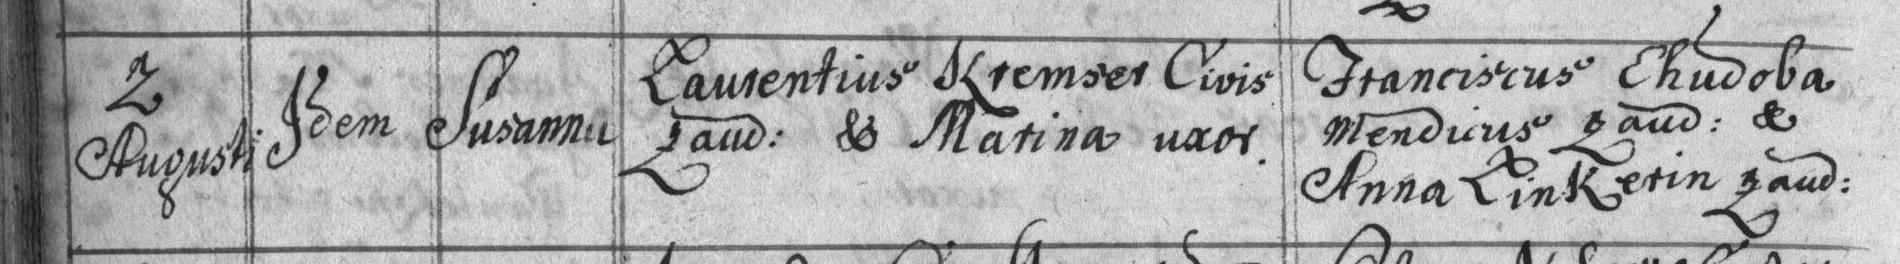 2
Augusti
Idem
Susanna
Laurentius Kremser Civis
Zaud: & Marina uxor.
Franciscus Chudoba
Mendicus Zaud: &
Anna Linkerin Zaud: